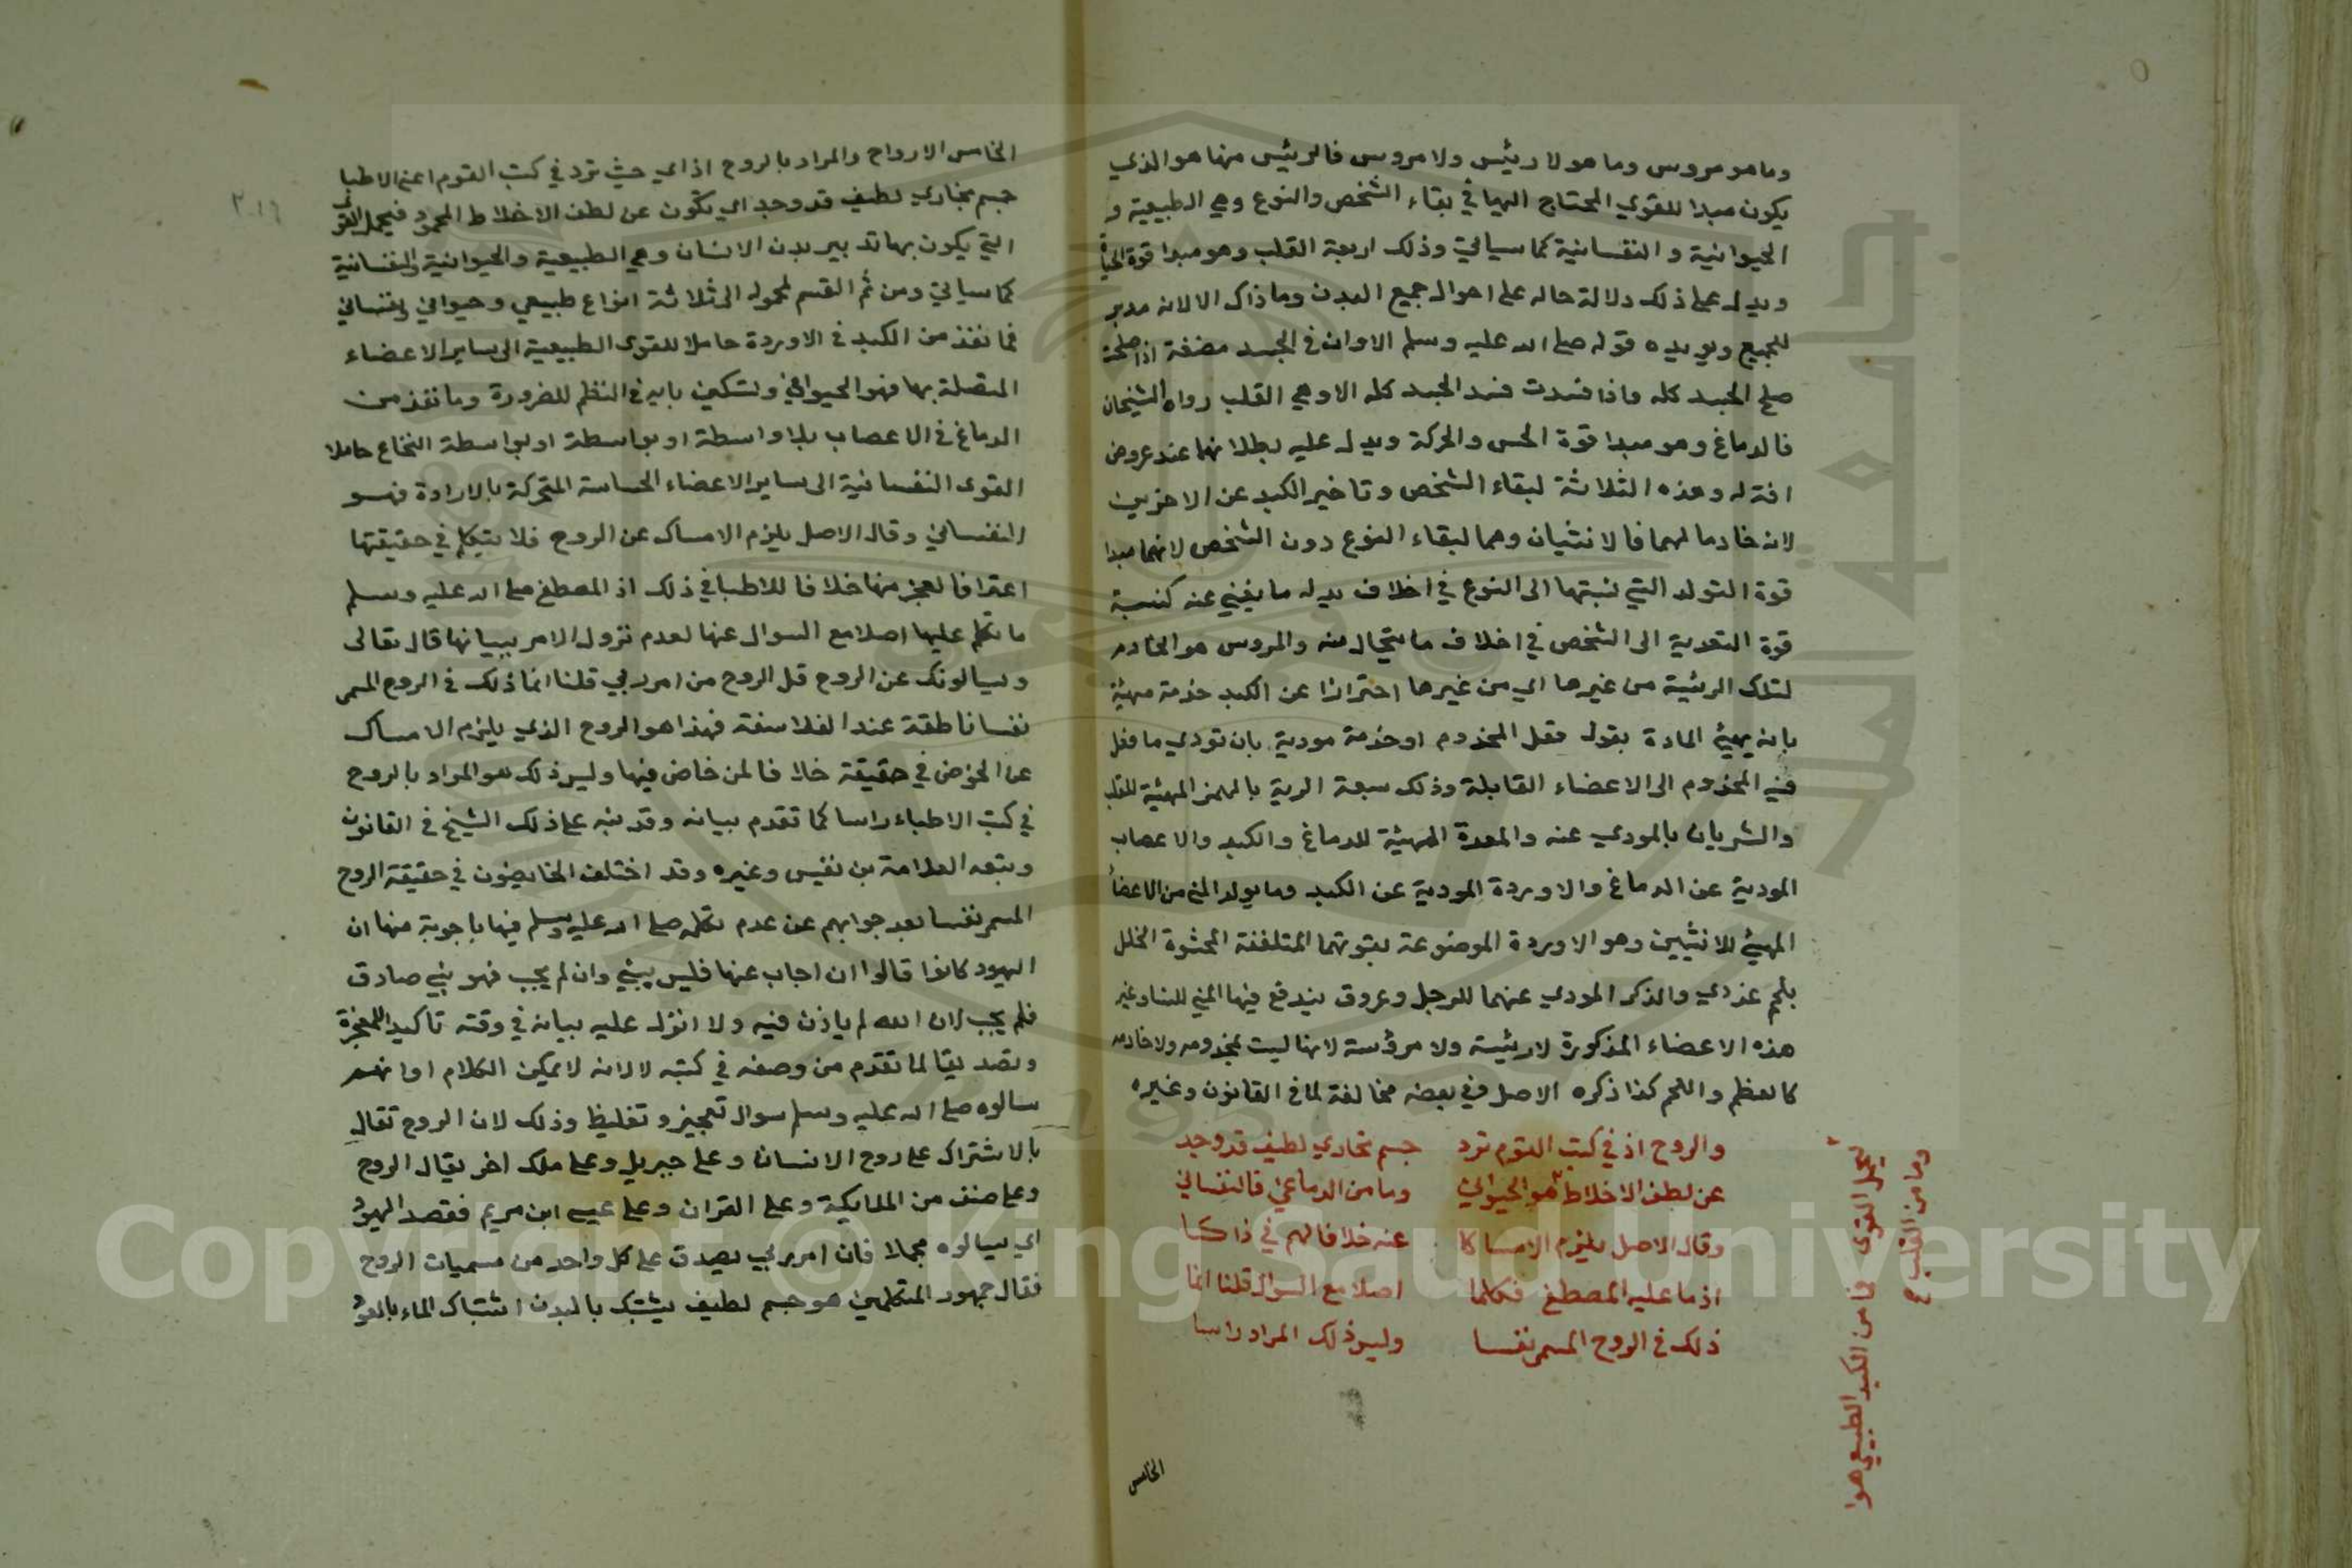 وما هو مروس وما هو لا رئيس ولا مروس فالرئيس منها هو الذي
يكون مبدا للقوي المحتاج اليها في بقاء الشخص والنوع وهي الطبيعية و
الحيوانية و النفسانية كما سياتي وذلك اربعة القلب وهو مبدا قوة الحياة
ويدل على ذلك دلالة حاله على احوال جميع البدن وما ذاك الا لانه مدبر
للجميع ويويده قوله صلى الله عليه وسلم الا وان في الجسد مضغة اذا صلحت
صلح الجسد كله واذا فسدت فسد الجسد كله الا وهي القلب رواه الشيخان
فالدماغ وهو مبدا قوة الحس والحركة ويدل عليه بطلانهما عند عروض
افة له وهذه الثلاثة لبقاء الشخص وتاخير الكبد عن الاخرين
لانه خادما لهما فالانثيان وهما لبقاء النوع دون الشخص لانهما مبدا
قوة التولد التي نسبتها الى النوع في اخلاف بدل ما يفني عنه كنسبة
قوة التغدية الى الشخص في اخلاف ما يتحال منه والمروس هو الخادم
لتلك الرئيسة من غيرها اي من غيرها احترازا عن الكبد خدمة مهيئة
بانه يهيئ المادة بقوله فعل المخدوم او خدمة مودية بان تودي ما فعل
فيه المخدوم الى الاعضاء القابلة وذلك سبعة الرية بالهمز المهيئة للقلب
والشريان بالمودي عنه والمعدة المهيئة للدماغ والكبد والاعصاب
المودية عن الدماغ والاوردة المودية عن الكبد وما يولد المني من الاعضأ
المهيئ للانثيين وهو الاوردة الموضوعة بقوتهما المتلففة المحشوة الخلل
بلحم غددي والذكر المودي عنهما للرجل وعروق يندفع فيها المني للنسا وغير
هذه الاعضاء المذكورة لا رئيسة ولا مرؤسة لانها ليست بمخدومه ولا خادمه
كالعظم واللحم كذا ذكره الاصل وفي بعضه مخالفة لما في القانون وغيره
والروح اذ في كتب القوم ترد جسم بخاري لطيف قد وجد
عن لطف الاخلاط هو الحيواني وما من الدماغي فالنفساني
وقال الاصل يلزم الامساكا عنه خلافا لهم في ذاكا
اذ ما عليه المصطفى فكلما اصلا مع السوال قلنا انما
ذلك في الروح المسمى نفسا وليس ذلك المراد راسا
يحمل القوى فما من الكبد الطبيعي هوا
وما من القلب
الخامس
٢٠١٦
الخامس الارواح والمراد بالروح اذ اي حيث ترد في كتب القوم اعني الاطبا
جسم بخاري لطيف قد وجد اي يكون عن لطف الاخلاط المحمود فيحمل القوى
التي يكون بها تدبير بدن الانسان وهي الطبيعية والحيوانية والنفسانية
كما سياتي ومن ثم القسم لمحموله الى ثلاثة انواع طبيعي وحيواني ونفساني
فما نفذ من الكبد في الاوردة حاملا للقوى الطبيعية الى ساير الاعضاء
المتصلة بها فهو الحيواني وتسكين يايه في النظم للضرورة وما نفذ من
الدماغ في الاعصاب بلا واسطة او بواسطة او بواسطة النخاع حاملا
القوى النفسانية الى ساير الاعضاء الحساسة المتحركة بالارادة فهو
النفساني وقال الاصل يلزم الامساك عن الروح فلا يتكلم في حقيقتها
اعترافا لعجز منها خلافا للاطبا في ذلك اذ المصطفى صلى الله عليه وسلم
ما تكلم عليها اصلا مع السوال عنها لعدم نزول الامر ببيانها قال تعالى
ويسالونك عن الروح قل الروح من امر ربي قلنا انما ذلك في الروح المسمى
نفسا ناطقة عند الفلاسفة فهذا هو الروح الذي يلزم الامساك
عن الخوض في حقيقة خلافا لمن خاض فيها وليس ذلك هو المراد بالروح
في كتب الاطباء راسا كما تقدم بيانه وقد نبه على ذلك الشيخ في القانون
وتبعه العلامة بن نفيس وغيره وقد اختلف الخايضون في حقيقة الروح
المسمى نفسا بعد جوابهم عن عدم تكلمه صلى الله عليه وسلم فيها باجوبة منها ان
اليهود كانوا قالوا ان اجاب عنها فليس بنبي وان لم يجب فهو نبي صادق
فلم يجب لان الله لم ياذن فيه ولا انزل عليه بيانه في وقته تاكيدا للمعجزة
وتصديقا لما تقدم من وصفه في كتبه لا لانه لا يمكن الكلام او انهم
سالوه صلى الله عليه وسلم سوال تعجيز وتغليظ وذلك لان الروح تقال
بالاشتراك على روح الانسان وعلى جبريل وعلى ملك اخر يقال الروح
وعلى صنف من الملايكة وعلى القران وعلى عيسى ابن مريم فقصد اليهود
اي يسالوه مجملا فان امر ربي يصدق على كل واحد من مسميات الروح
فقال جمهور المتكلمين هو جسم لطيف يشتبك بالبدن اشتباك الماء بالعود
Copyright © King Saud University
1957